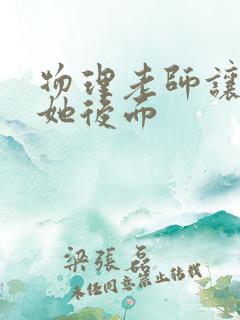 物理老師讓
她後而
梁張磊
未经同意禁止转载